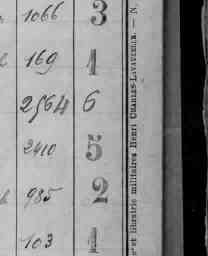 1066 3
169 1
2564 6
2410 5
985 2
103 1
et librairie militaires Henri CHARLES-LAVAUZELLE. — N.